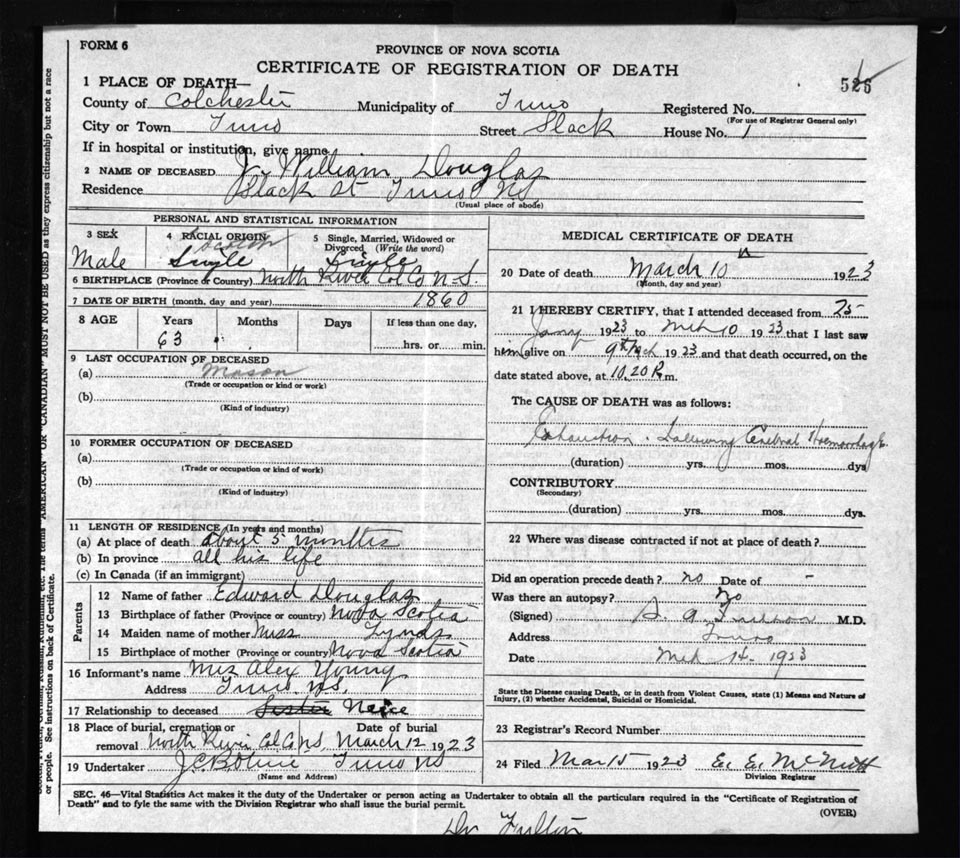 FORM 6
PROVINCE OF NOVA SCOTIA
CERTIFICATE OF REGISTRATION OF DEATH
526
1 PLACE OF DEATH—
County of Colchester Municipality of Truro Registered No.
(For use of Registrar General only)
City or Town Truro Street Slack House No. 1
If in hospital or institution, give name
2 NAME OF DECEASED J. William Douglas
Residence Slack St Truro NS
(Usual place of abode)
PERSONAL AND STATISTICAL INFORMATION
3 SEX 4 RACIAL ORIGIN 5 Single, Married, Widowed or Divorced (Write the word)
Male Scotch Single Single
6 BIRTHPLACE (Province or Country) North River Col Co N-S.
7 DATE OF BIRTH (month, day and year) 1860
8 AGE Years Months Days If less than one day,
63 hrs. or min.
9 LAST OCCUPATION OF DECEASED
(a) Mason
(Trade or occupation or kind or work)
(b)
(Kind of industry)
10 FORMER OCCUPATION OF DECEASED
(a)
(Trade or occupation or kind of work)
(b)
(Kind of industry)
11 LENGTH OF RESIDENCE (In years and months)
(a) At place of death about 5 months
(b) In province all his life
(c) In Canada (if an immigrant)
Parents
12 Name of father Edward Douglas
13 Birthplace of father (Province or country) Nova Scotia
14 Maiden name of mother Miss Lynds
15 Birthplace of mother (Province or country) Nova Scotia
16 Informant's name Mrs Alex Young
Address Truro N.S.
17 Relationship to deceased Sister Neice
18 Place of burial, cremation or removal North River Col Co NS Date of burial March 12 1923
19 Undertaker Truro NS
(Name and Address)
MEDICAL CERTIFICATE OF DEATH
20 Date of death March 10 1923
(Month, day and year)
21 I HEREBY CERTIFY, that I attended deceased from 25
Jany 1923 to Mch 10 1923 that I last saw
him alive on 9th Mch 1923 and that death occurred, on the
date stated above, at 10.20 P.m.
The CAUSE OF DEATH was as follows:
Exhaustion. Following Cerebral Haemorrhage
(duration) yrs. mos. dys.
CONTRIBUTORY
(Secondary)
(duration) yrs. mos. dys.
22 Where was disease contracted if not at place of death?
Did an operation precede death? no Date of -
Was there an autopsy? no
(Signed) Fulton M.D.
Address Truro
Date Mch 14 1923
State the Disease causing Death, or in death from Violent Causes, state (1) Means and Nature of
Injury, (2) whether Accidental, Suicidal or Homicidal.
23 Registrar's Record Number
24 Filed Mar 15 1923 E. E. McNutt
Division Registrar
SEC. 46—Vital Statistics Act makes it the duty of the Undertaker or person acting as Undertaker to obtain all the particulars required in the "Certificate of Registration of
Death" and to fyle the same with the Division Registrar who shall issue the burial permit.
(OVER)
Dr Fulton
or people. See instructions on back of Certificate.
The terms "AMERICAN" OR "CANADIAN" MUST NOT BE USED as they express citizenship but not a race